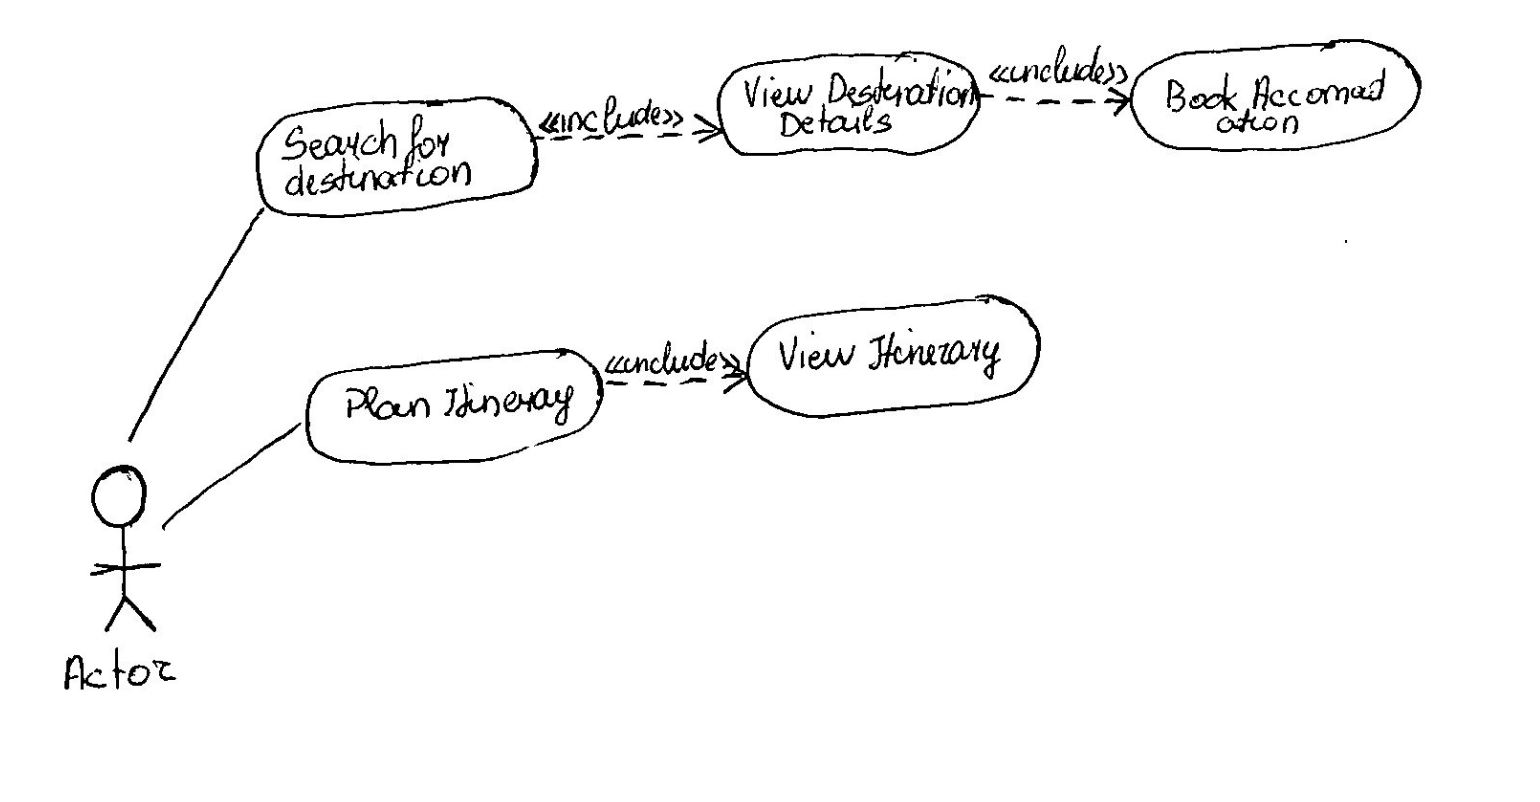 Search for
destination
<<include>>
View Destination
Details
<<include>>
Book Accomad
ation
Plan Itineray
<<include>>
View Itinerary
Actor